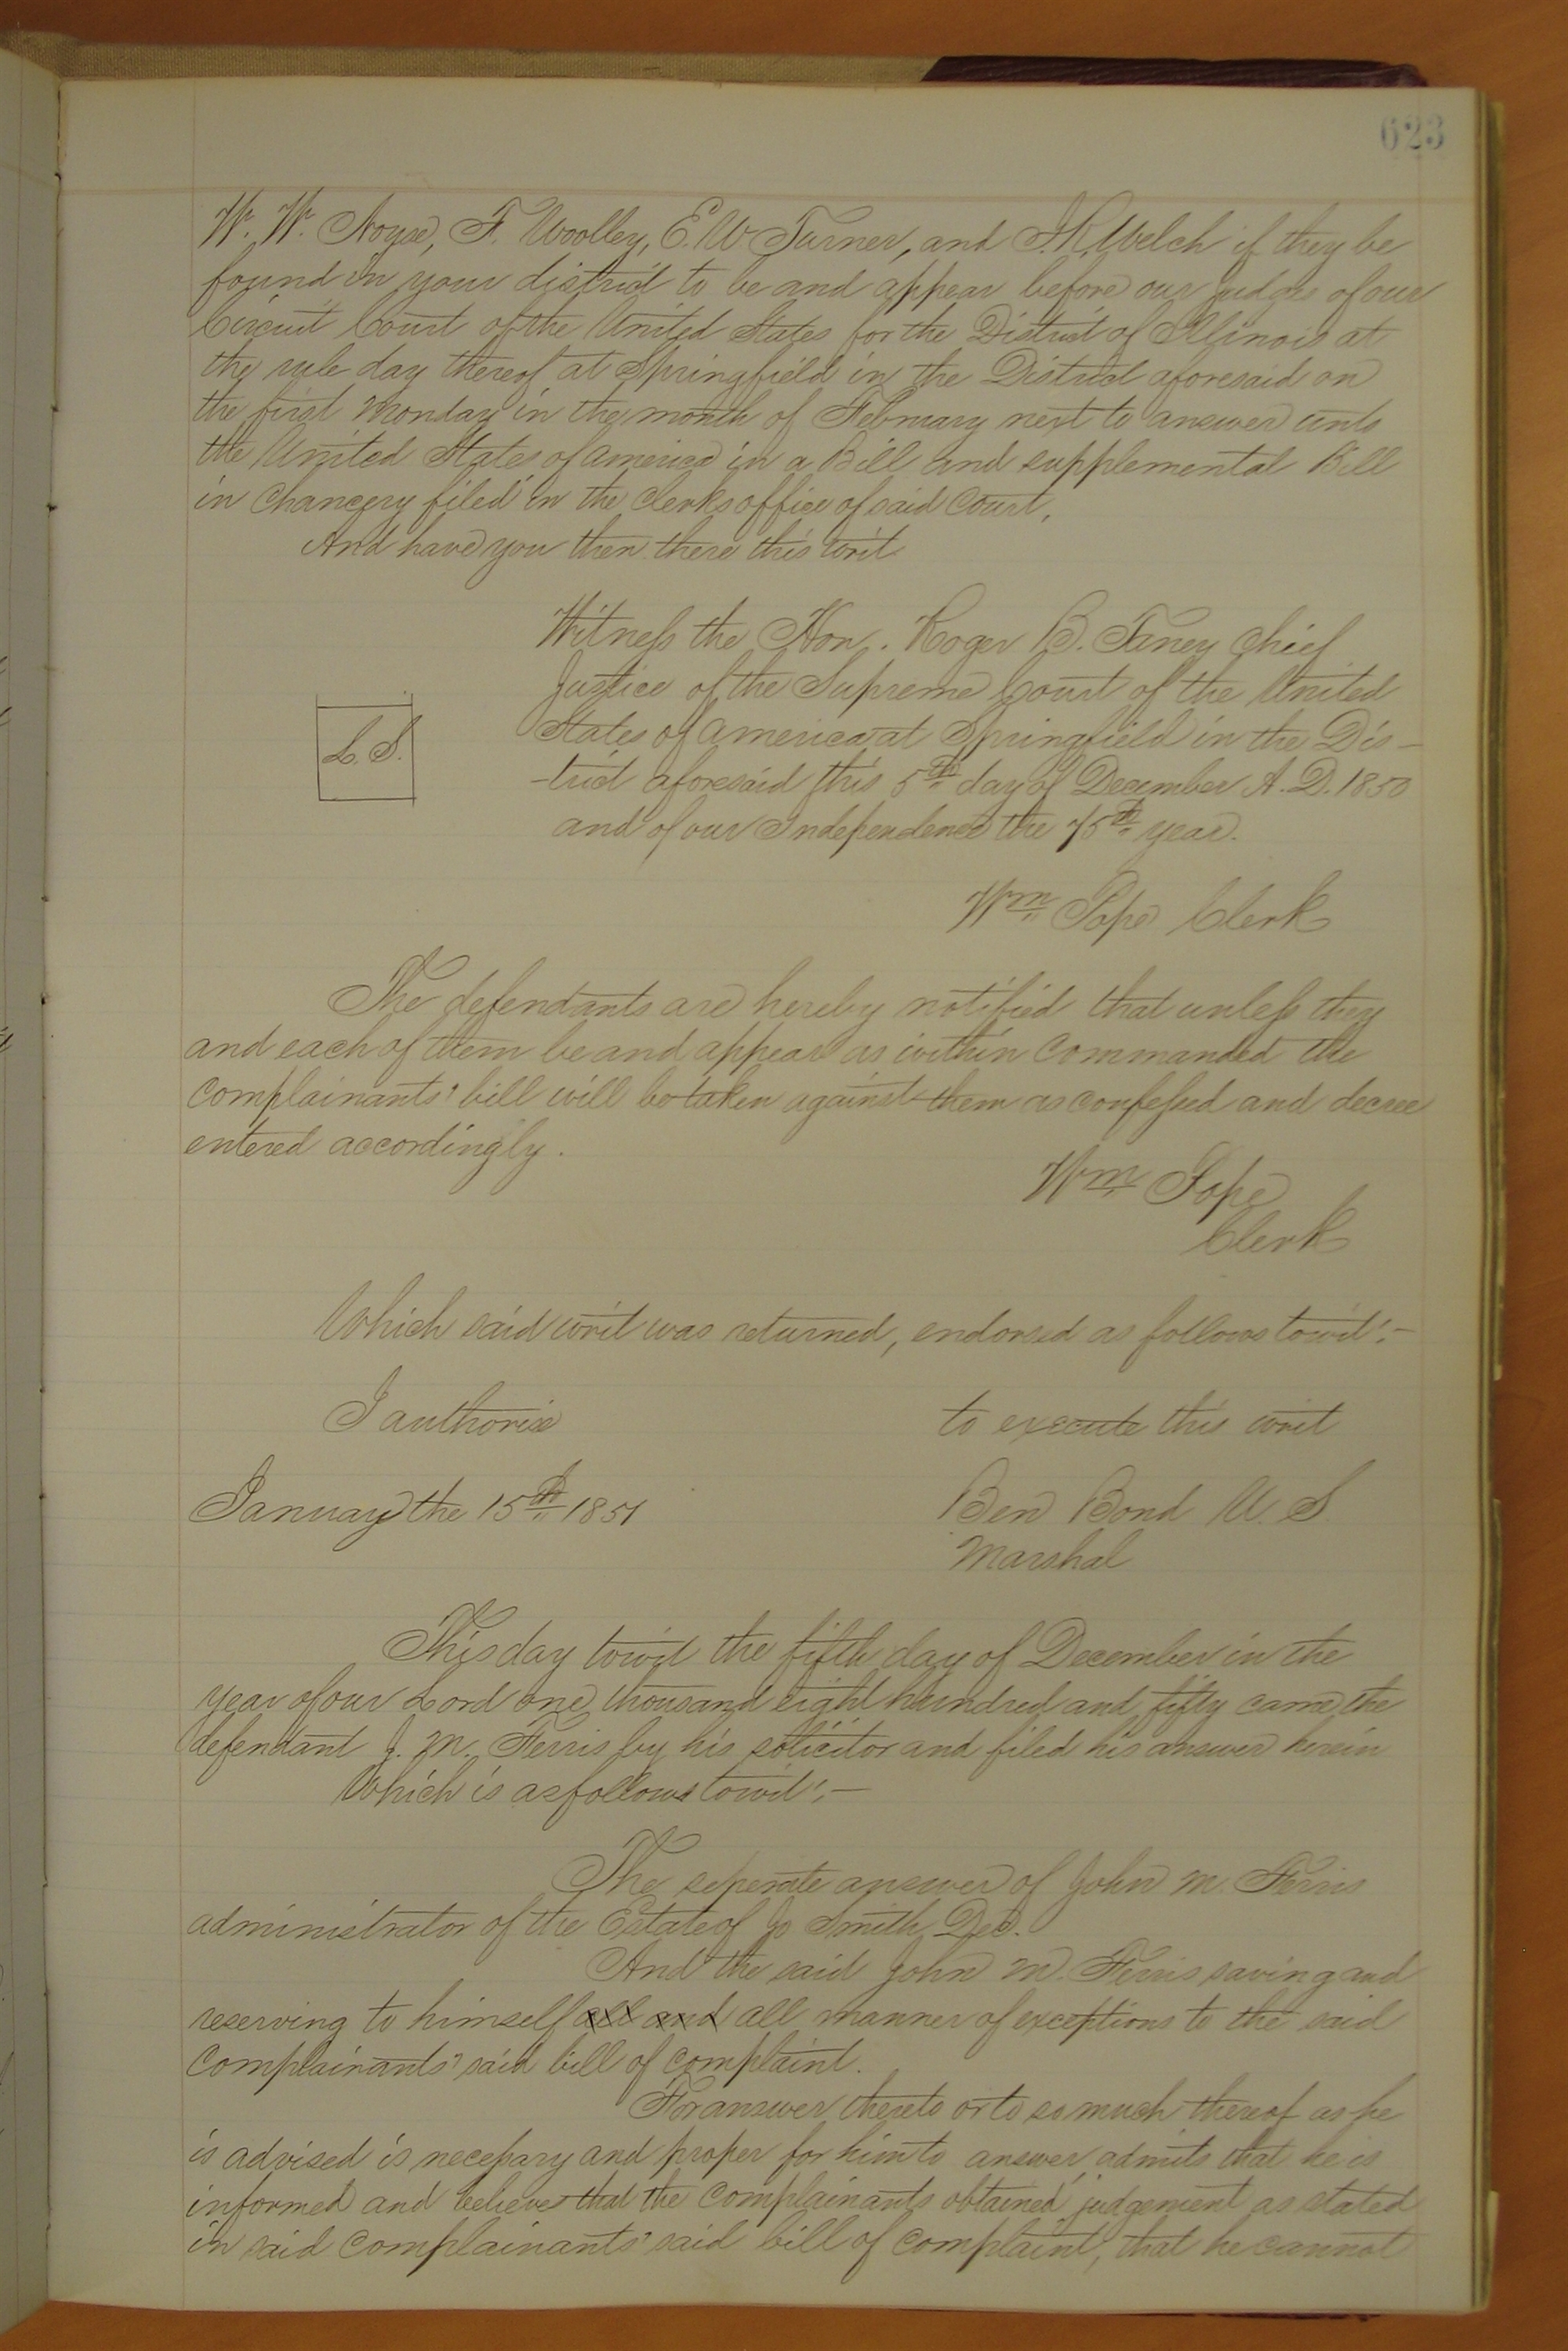 623
W. W. Noyse, F. Woolley, E. W Turner, and I. R. Welch if they be
found in your district to be and appear before our judges of our
Circuit Court of the United States for the District of Illinois at
the rule day thereof at Springfield in the District aforesaid on
the first Monday in the month of February next to answer unto
the United States of America in a Bill and supplemental Bill
in Chancery filed in the Clerks office of said Court,
And have you then there this writ
Witness the Hon. Roger B. Taney Chief
Justice of the Supreme Court of the United
L. S.
States of America at Springfield in the Dis-
-trict aforesaid this 5th day of December A. D. 1850
and of our Independence the 75th year.
Wm Pope Clerk
The defendants are hereby notified that unless they
and each of them be and appear as within Commanded the
Complainants' bill will be taken against them as confessed and decree
entered accordingly.
Wm Pope
Clerk
Which said writ was returned, endorsed as follows towit:-
I authorise to execute this writ
January the 15th 1851 Ben Bond U. S
Marshal
This day towit the fifth day of December in the
year of our Lord one thousand eight hundred and fifty came the
defendant J. M. Ferris by his solicitor and filed his answer herein
Which is as follows towit:-
The seperate answer of John M. Ferris
administrator of the Estate of Jo Smith Decd.
And the said John M. Ferris saving and
reserving to himself all and all manner of exceptions to the said
Complainants' said bill of complaint.
For answer thereto or to so much thereof as he
is advised is necessary and proper for him to answer, admits that he is
informed and believes that the Complainants obtained judgement as stated
in said Complainants' said bill of Complaint, that he cannot